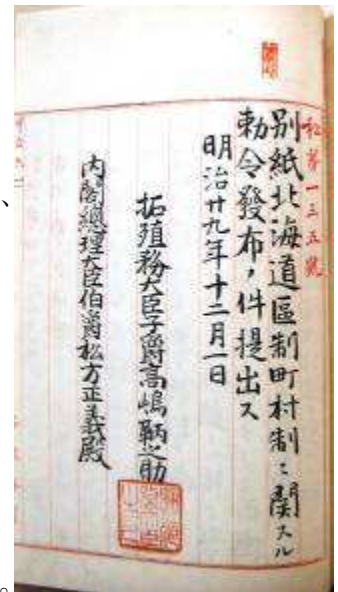 秘第一三五號
別紙北海道區制町村制ニ關スル
勅令發布ノ件提出ス
明治廿九年十二月一日
拓殖務大臣子爵高嶋鞆之助
内閣總理大臣伯爵松方正義殿